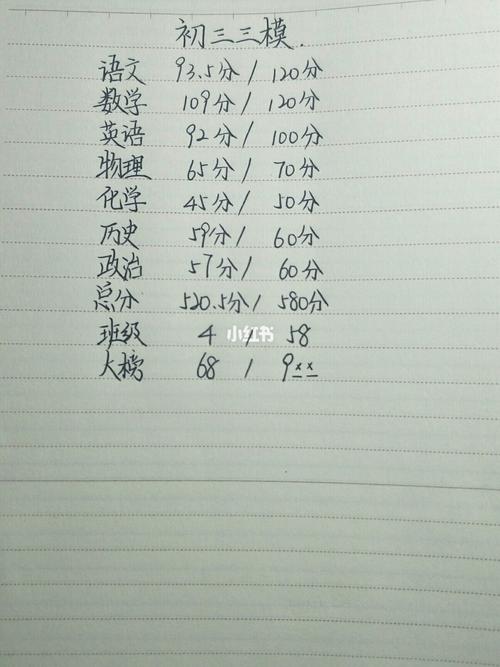 初三三模.
语文 93.5分 / 120分
数学 109分 / 120分
英语 92分 / 100分
物理 65分 / 70分
化学 45分 / 50分
历史 59分 / 60分
政治 57分 / 60分
总分 520.5分 / 580分
班级 4 / 58
小红书
大榜 68 / 9××